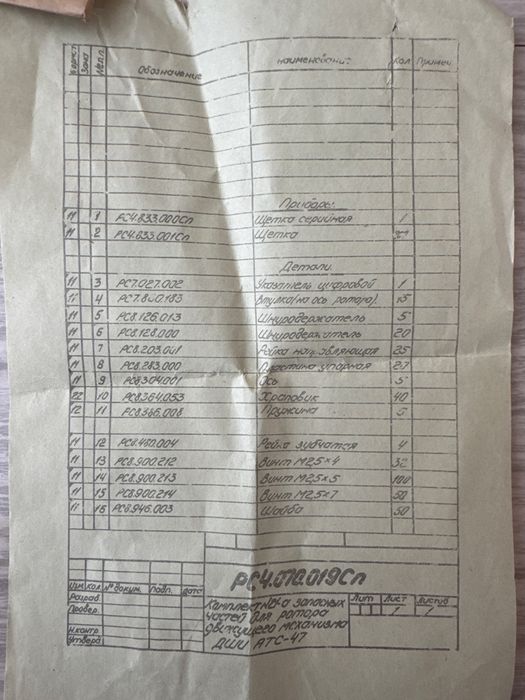 Формат Зона №п.п. Обозначение Наименование Кол Примеч
Приборы
11 1 РС4.833.000Сп Щетка серийная 1
11 2 РС4.833.001Сп Щетка
Детали
11 3 РС7.027.002 Указатель цифровой 1
11 4 Втулка (на ось ротора) 15
11 5 РС8.126.013 Шнуродержатель 5
11 6 РС8.128.000 Шнуродержатель 20
11 7 РС8.203.041 Рейка направляющая 25
11 8 РС8.283.000 Пластина упорная
11 9 РС8.304.001 Ось 5
22 10 РС8.364.053 Храповик 40
12 11 РС8.366.008 Пружина 5
11 12 РС8.480.004 Рейка зубчатая 4
11 13 РС8.900.212 Винт М2,5×4
11 14 РС8.900.213 Винт М2,5×5 100
11 15 РС8.900.214 Винт М2,5×7 50
11 16 РС8.946.003 Шайба 50
РС4.070.019Сп
Изм кол № докум. Подп. дата
Разраб.
Провер.
Н.контр
Утверд
Комплект запасных
частей для ротора
движущего механизма
ДШИ АТС-47
Лит Лист Листов
1 1